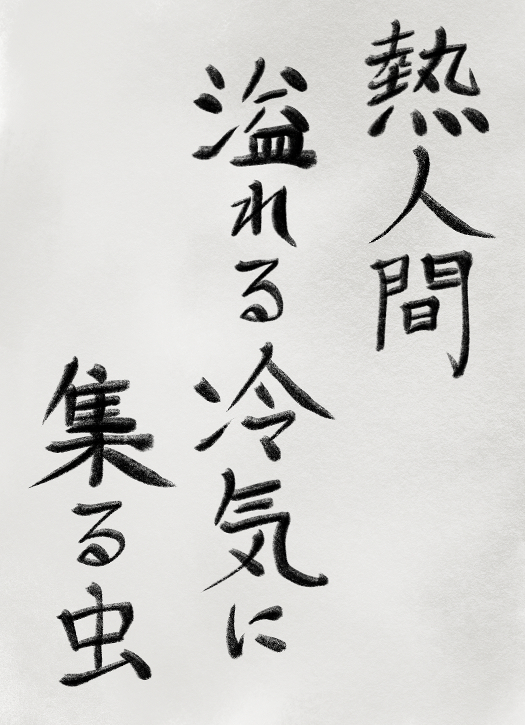 熱人間
溢れる冷気に
集る虫